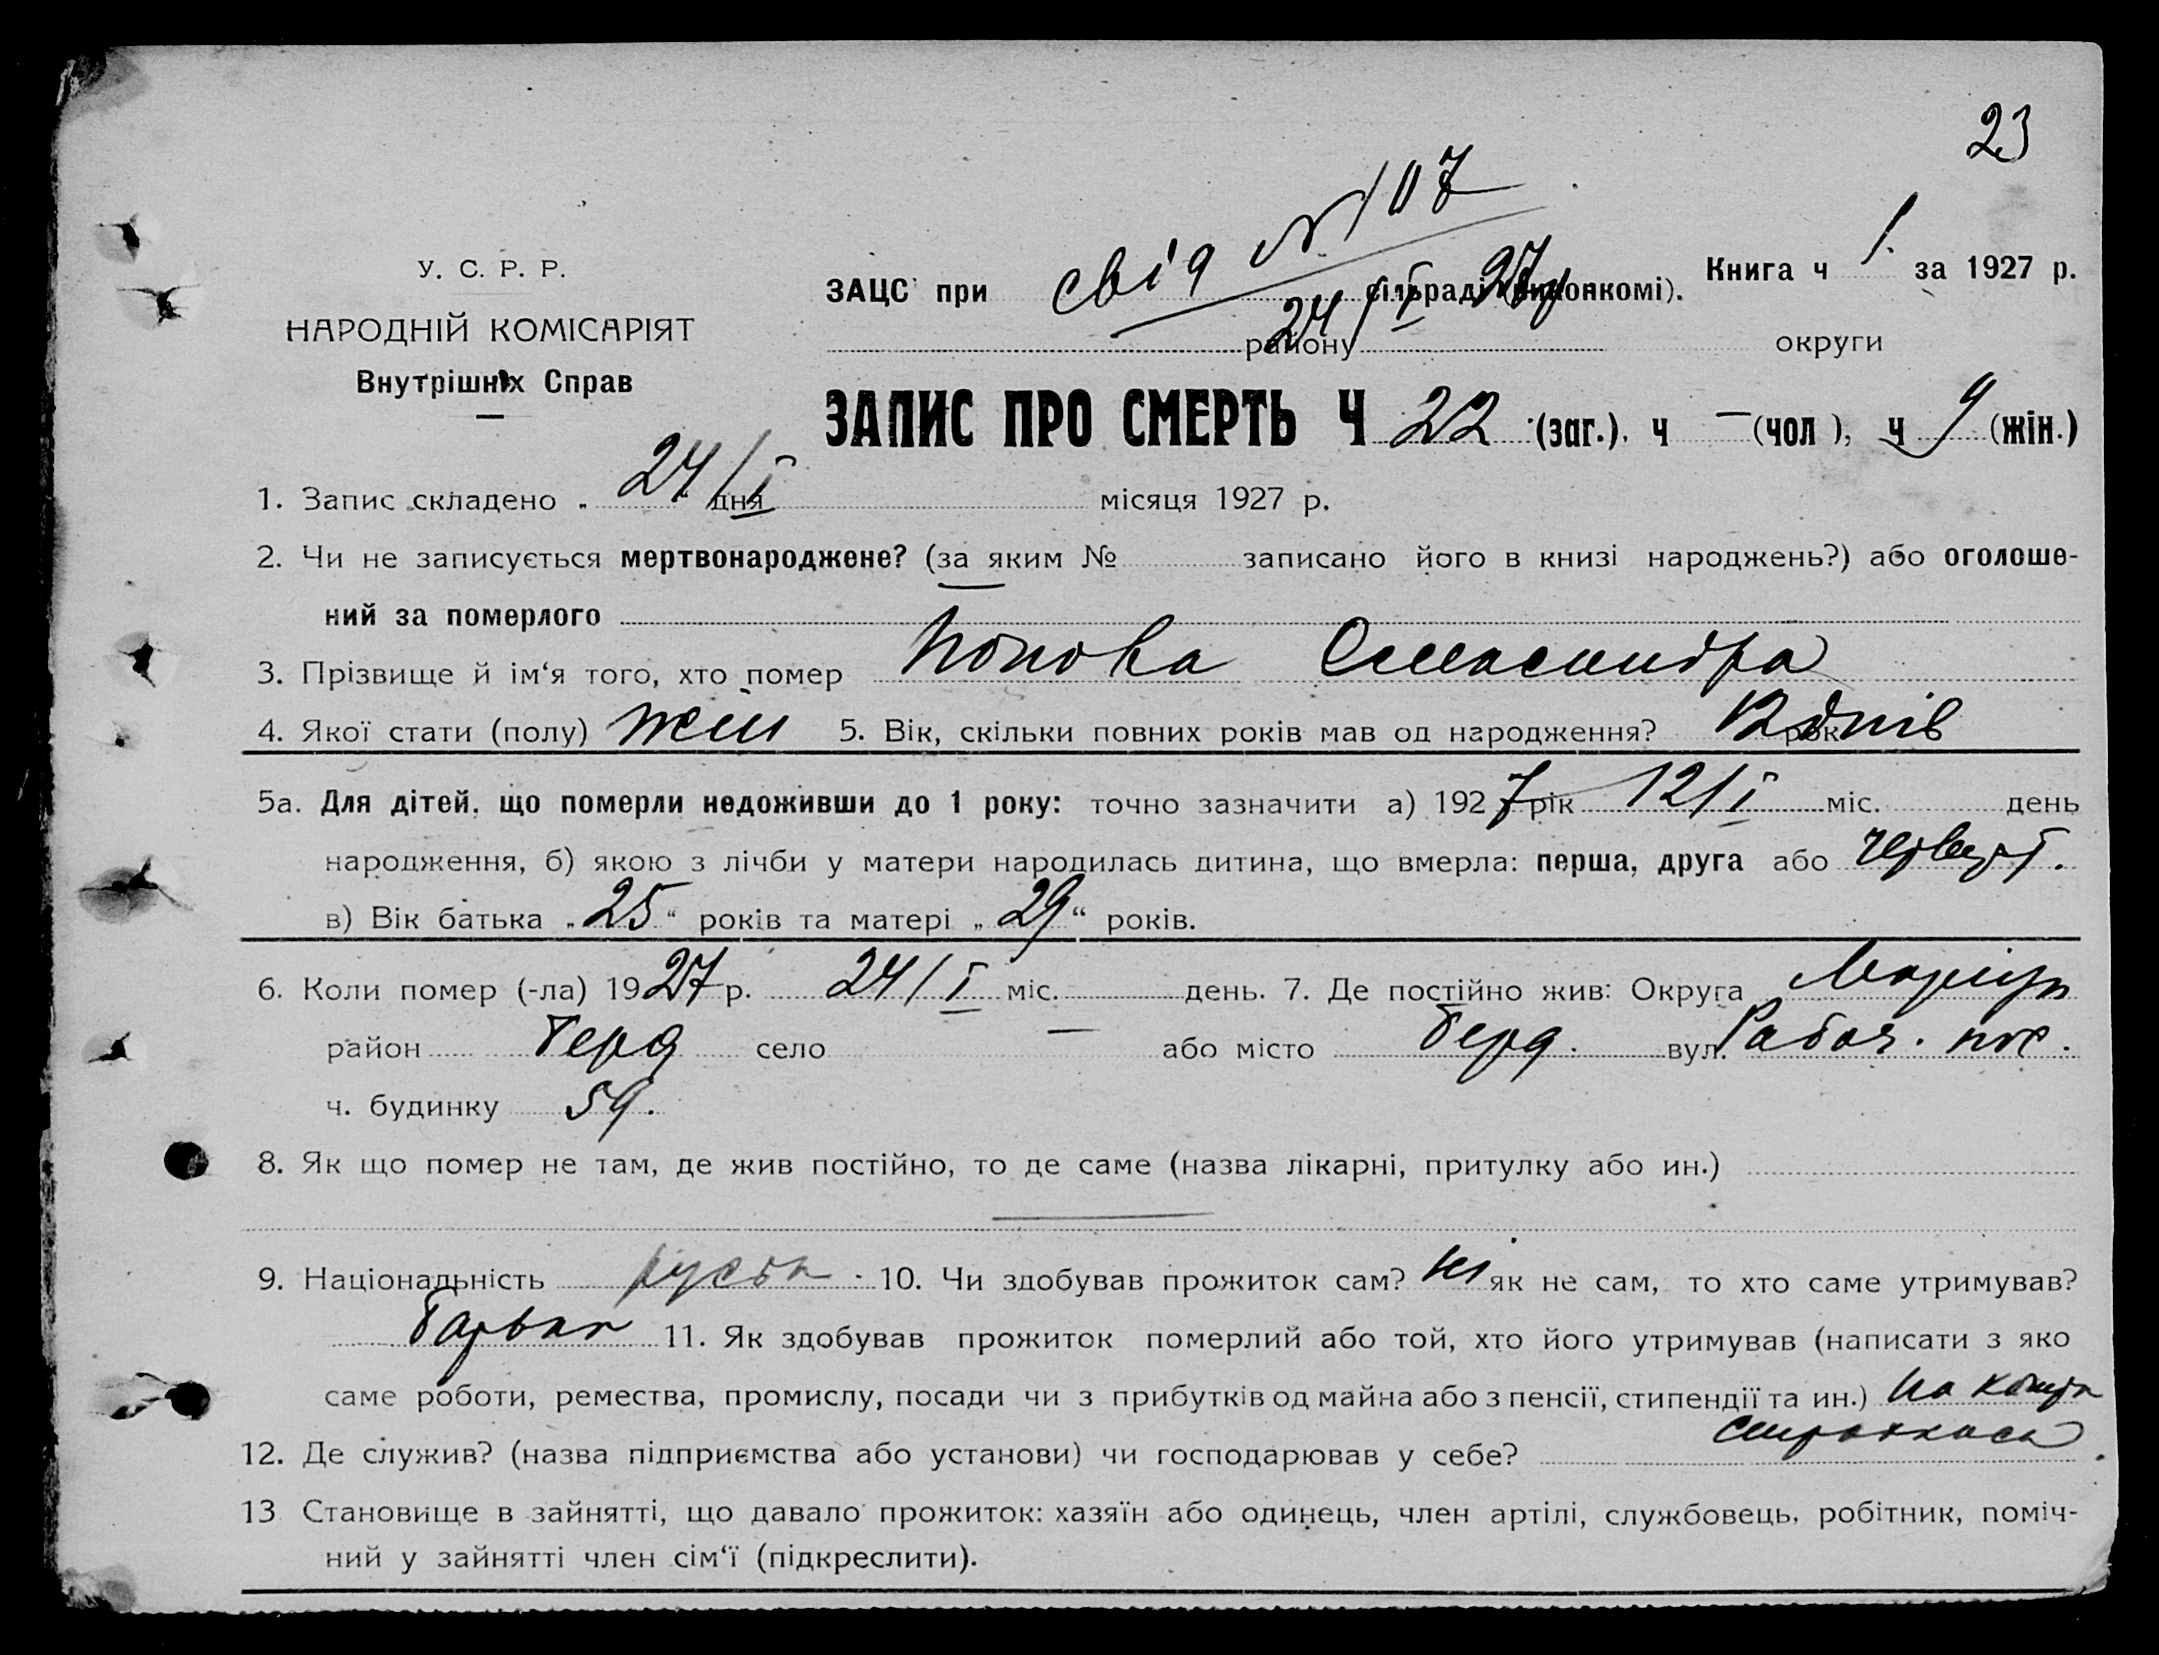 23
свід № 107
У. С. Р. Р.
НАРОДНІЙ КОМІСАРІЯТ
Внутрішніх Справ
ЗАЦС при сільраді (виконкомі). Книга ч 1 за 1927 р.
24/I 27р
району округи
ЗАПИС ПРО СМЕРТЬ Ч 22 (заг.), ч — (чол ), ч 9 (жін.)
1. Запис складено „ 24/I “ дня місяця 1927 р.
2. Чи не записується мертвонароджене? (за яким № записано його в книзі народжень?) або оголоше-
ний за померлого
3. Прізвище й ім‘я того, хто помер Попова Олександра
4. Якої стати (полу) жін 5. Вік, скільки повних років мав од народження? 12 днів рок
5а. Для дітей, що померли недоживши до 1 року: точно зазначити а) 1927 рік 12/I міс. день
народження, б) якою з лічби у матери народилась дитина, що вмерла: перша, друга або четверт.
в) Вік батька „25“ років та матері „29“ років.
6. Коли помер (-ла) 1927 р. 24/I міс. день. 7. Де постійно жив: Округа Маріуп
район Берд село — або місто Берд. вул. Рабоч. пос.
ч. будинку 59.
8. Як що помер не там, де жив постійно, то де саме (назва лікарні, притулку або ин.)
—
9. Національність руська 10. Чи здобував прожиток сам? ні як не сам, то хто саме утримував?
батько 11. Як здобував прожиток померлий або той, хто його утримував (написати з яко
саме роботи, ремества, промислу, посади чи з прибутків од майна або з пенсії, стипендії та ин.) на кошти
страхкаси
12. Де служив? (назва підприємства або установи) чи господарював у себе?
13 Становище в зайнятті, що давало прожиток: хазяїн або одинець, член артілі, службовець, робітник, поміч-
ний у зайнятті член сім‘ї (підкреслити).